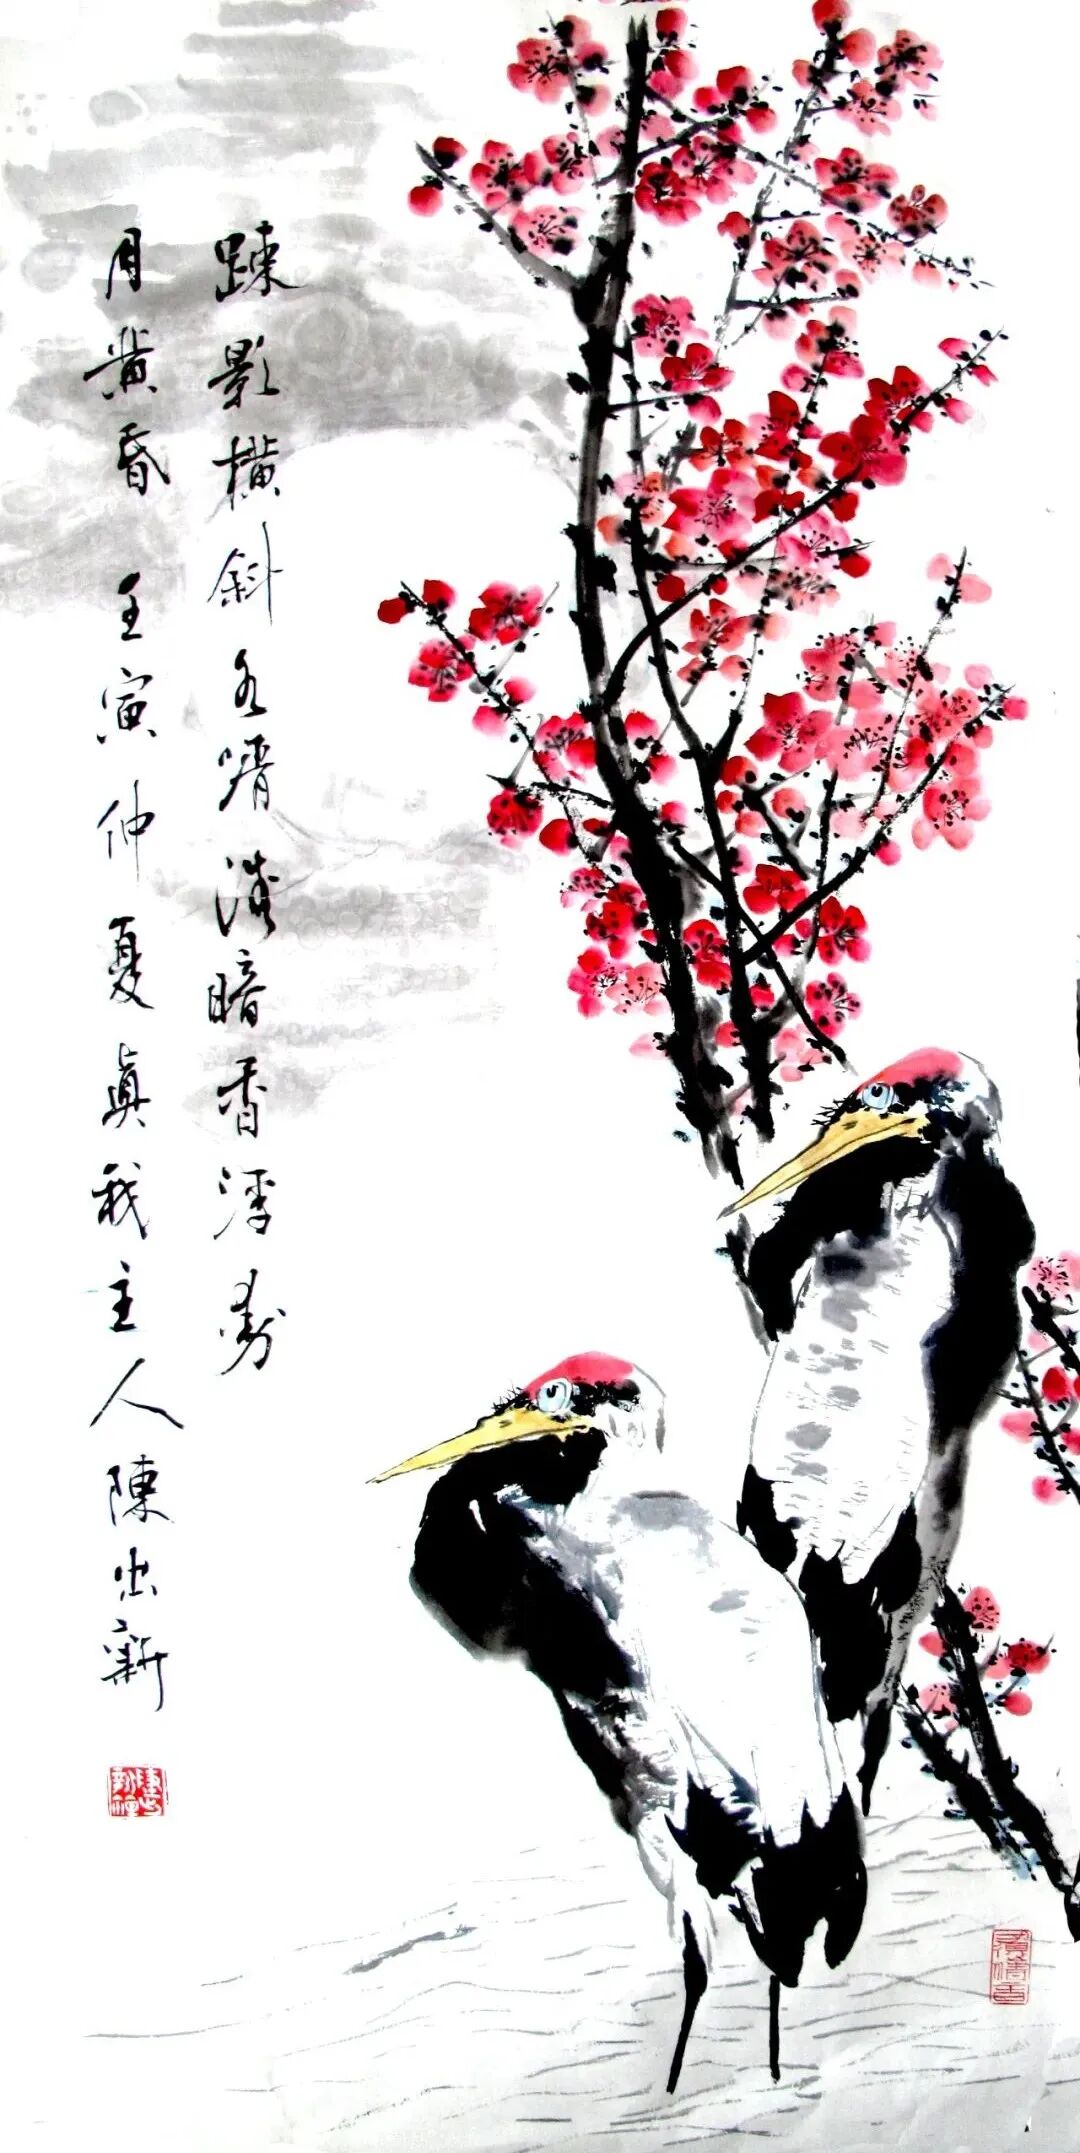 踈影横斜水清淺暗香浮動
月黄昏 壬寅仲夏眞我主人陳出新